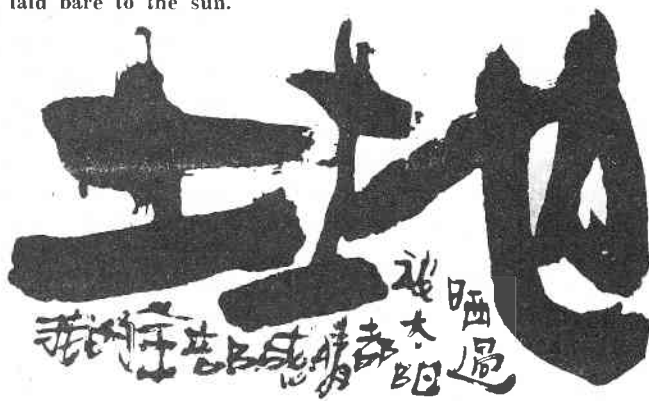 laid bare to the sun.
土地
我的全部感情都被太阳晒過